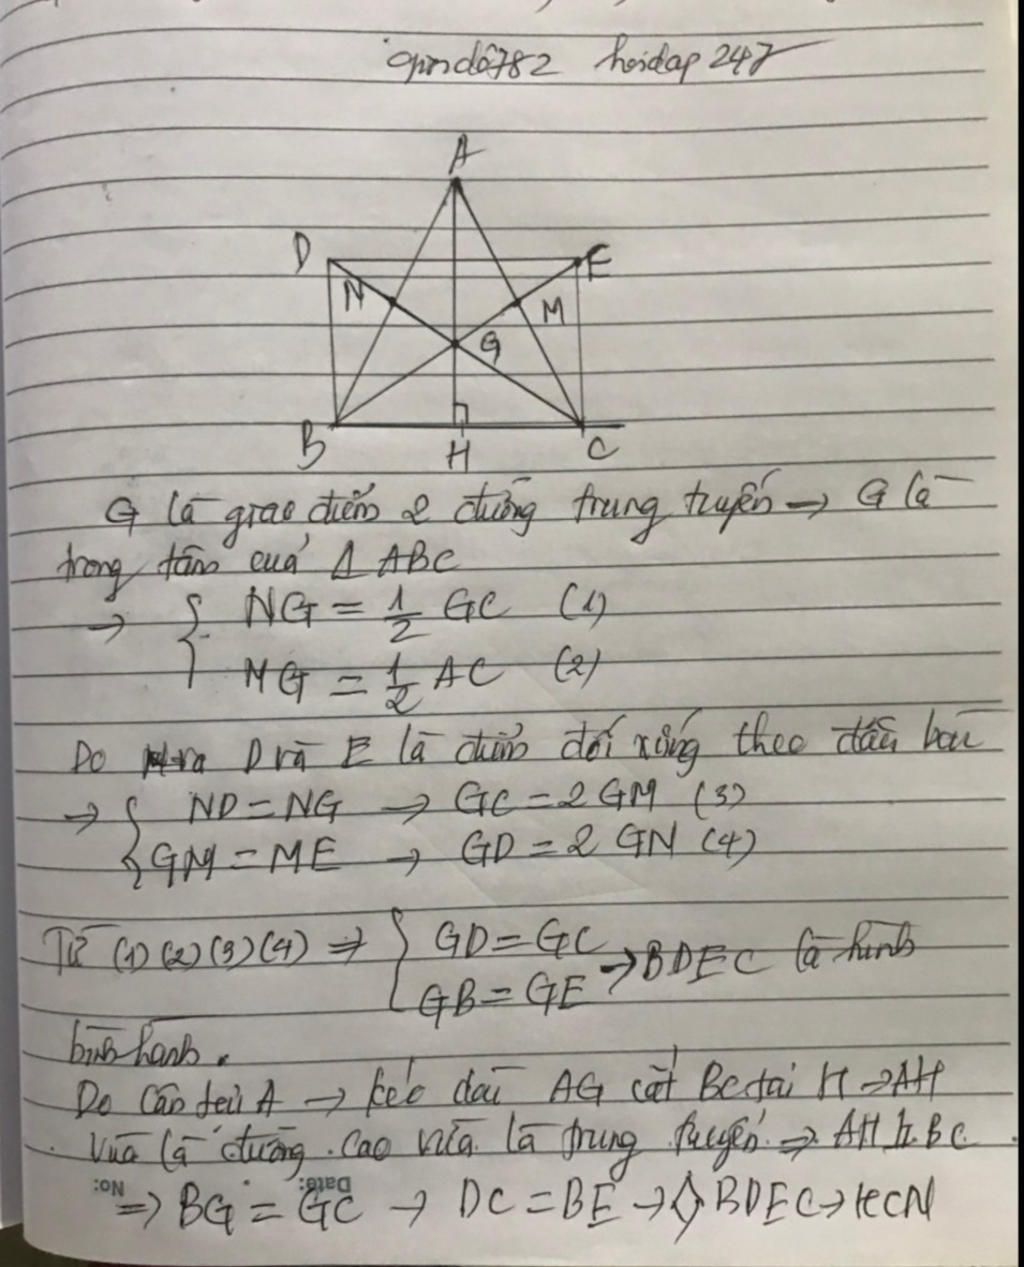 hoidap 247
A
D E
N M
G
B H C
G là giao điểm 2 đường trung tuyến → G là
trọng tâm của Δ ABC
→ { NG = 1/2 GC (1)
MG = 1/2 AC (2)
Do D và E là điểm đối xứng theo đầu bài
→ { ND = NG → GC = 2 GM (3)
GM = ME → GD = 2 GN (4)
Từ (1) (2) (3) (4) ⇒ { GD = GC
GB = GE → BDEC là hình
bình hành.
Do cân tại A → kéo dài AG cắt BC tại H → AH
vừa là đường cao vừa là trung tuyến ⇒ AH ⊥ BC
No: Date:
⇒ BG = GC → DC = BE → ◇ BDEC → HCN